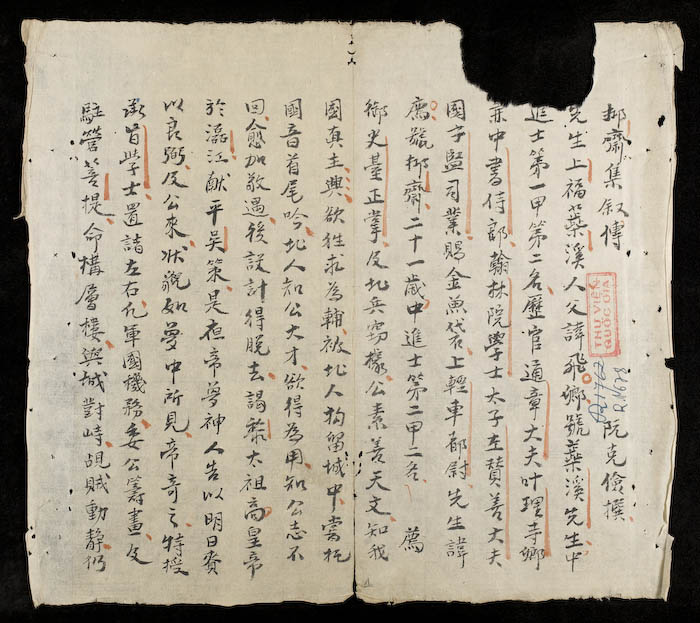 抑齋集叙傳
阮克儉撰
THƯ VIỆN
QUỐC GIA
R.1678
先生上福蘂溪人父諱飛卿號蘂溪先生中
進士第一甲第二名歷官通章大夫叶理寺卿
兼中書侍郎翰林院學士太子左贊善大夫
國子監司業賜金魚袋上輕車都尉先生諱
廌號抑齋二十一歲中進士第二甲二名薦
御史臺正掌及北兵竊據公素善天文知我
國真主興欲往求為輔被北人拘留城中嘗托
國音首尾吟北人知公大才欲得為用知公志不
回愈加敬遇後設計得脫去謁黎太祖高皇帝
於瀛江献平吳策是夜帝夢神人告以明日賚
以良弼及公來狀貌如夢中所見帝奇之特授
承旨學士置諸左右凢軍國機務委公籌畫及
駐營菩提命構層樓與城對峙覘賊動静仍